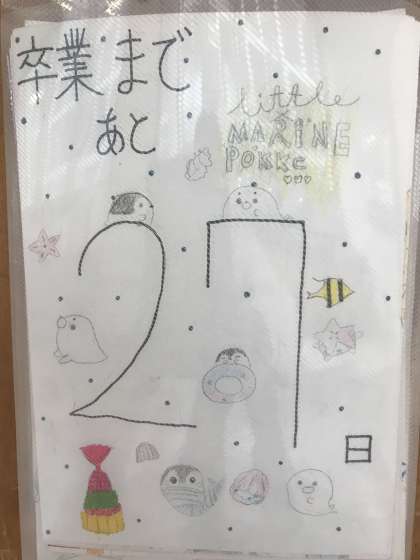 卒業まで
あと
little
MARINE
POKKe
27
日